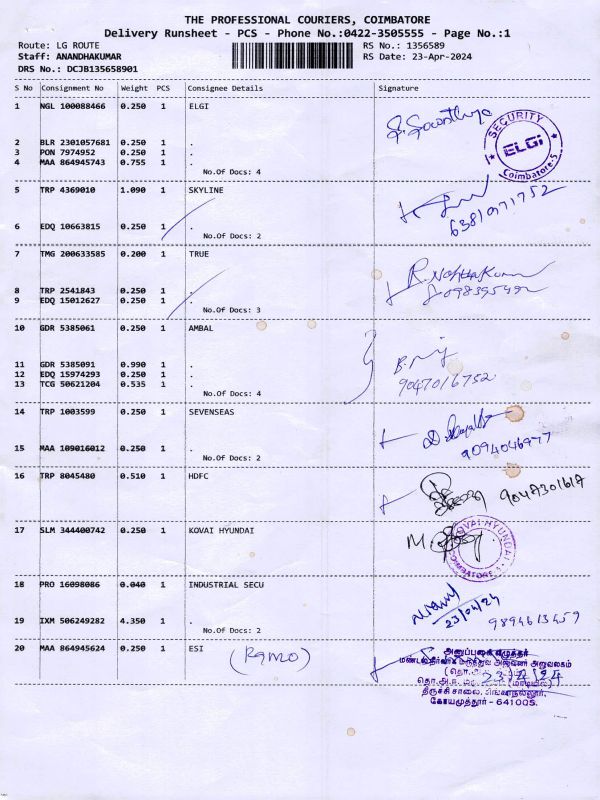 THE PROFESSIONAL COURIERS, COIMBATORE
Delivery Runsheet - PCS - Phone No.:0422-3505555 - Page No.:1
Route: LG ROUTE RS No.: 1356589
Staff: ANANDHAKUMAR RS Date: 23-Apr-2024
DRS No.: DCJB135658901
S No Consignment No Weight PCS Consignee Details Signature
1 NGL 100088466 0.250 1 ELGI
SECURITY
ELGi
Coimbatore-5
2 BLR 2301057681 0.250 1 .
3 PON 7974952 0.250 1 .
4 MAA 864945743 0.755 1 .
No.Of Docs: 4
5 TRP 4369010 1.090 1 SKYLINE
6381071752
6 EDQ 10663815 0.250 1 .
No.Of Docs: 2
7 TMG 200633585 0.200 1 TRUE
8 TRP 2541843 0.250 1 .
9 EDQ 15012627 0.250 1 .
No.Of Docs: 3
10 GDR 5385061 0.250 1 AMBAL
11 GDR 5385091 0.990 1 .
12 EDQ 15974293 0.250 1 .
13 TCG 50621204 0.535 1 .
9047016752
No.Of Docs: 4
14 TRP 1003599 0.250 1 SEVENSEAS
15 MAA 109016012 0.250 1 .
No.Of Docs: 2
16 TRP 8045480 0.510 1 HDFC
17 SLM 344400742 0.250 1 KOVAI HYUNDAI
KOVAI HYUNDAI
COIMBATORE-5
18 PRO 16098086 0.040 1 INDUSTRIAL SECU
23/04/24
19 IXM 506249282 4.350 1 .
9894613459
No.Of Docs: 2
20 MAA 864945624 0.250 1 ESI
23/4/24
திருச்சி சாலை, சிங்காநல்லூர்,
கோயமுத்தூர் - 641005.